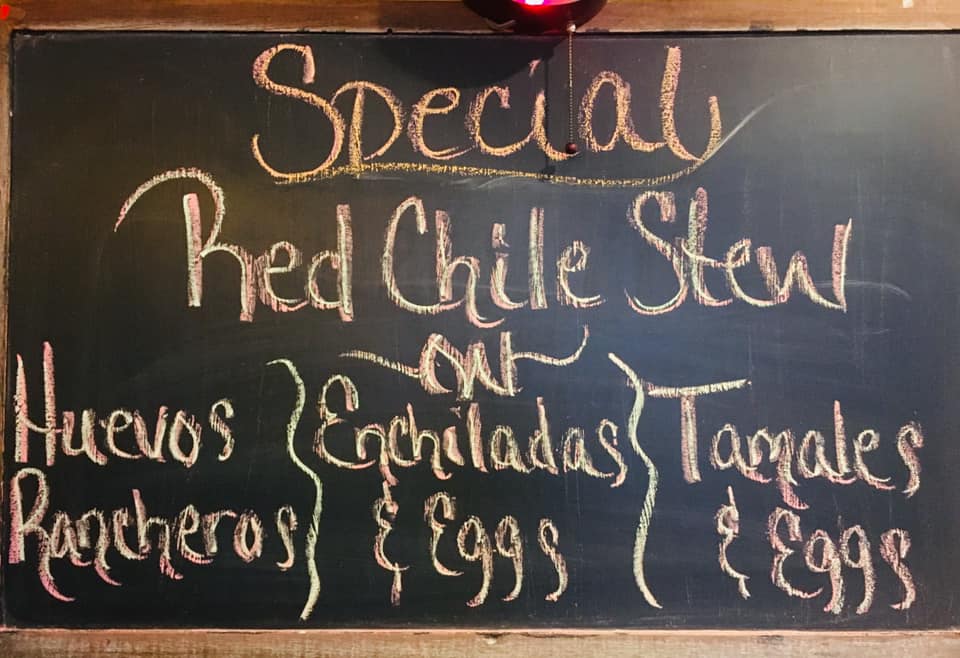 Special
Red Chile Stew
on
Huevos
Rancheros
Enchiladas
& Eggs
Tamales
& Eggs